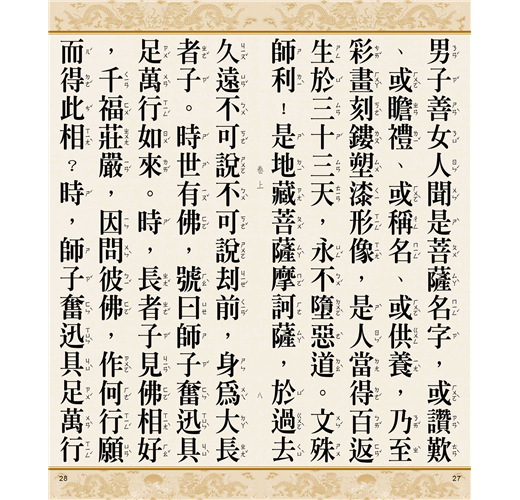 男子善女人聞是菩薩名字，或讚歎
、或瞻禮、或稱名、或供養，乃至
彩畫刻鏤塑漆形像，是人當得百返
生於三十三天，永不墮惡道。文殊
師利！是地藏菩薩摩訶薩，於過去
卷上
八
久遠不可說不可說劫前，身為大長
者子。時世有佛，號曰師子奮迅具
足萬行如來。時，長者子見佛相好
，千福莊嚴，因問彼佛，作何行願
而得此相？時，師子奮迅具足萬行
28
27